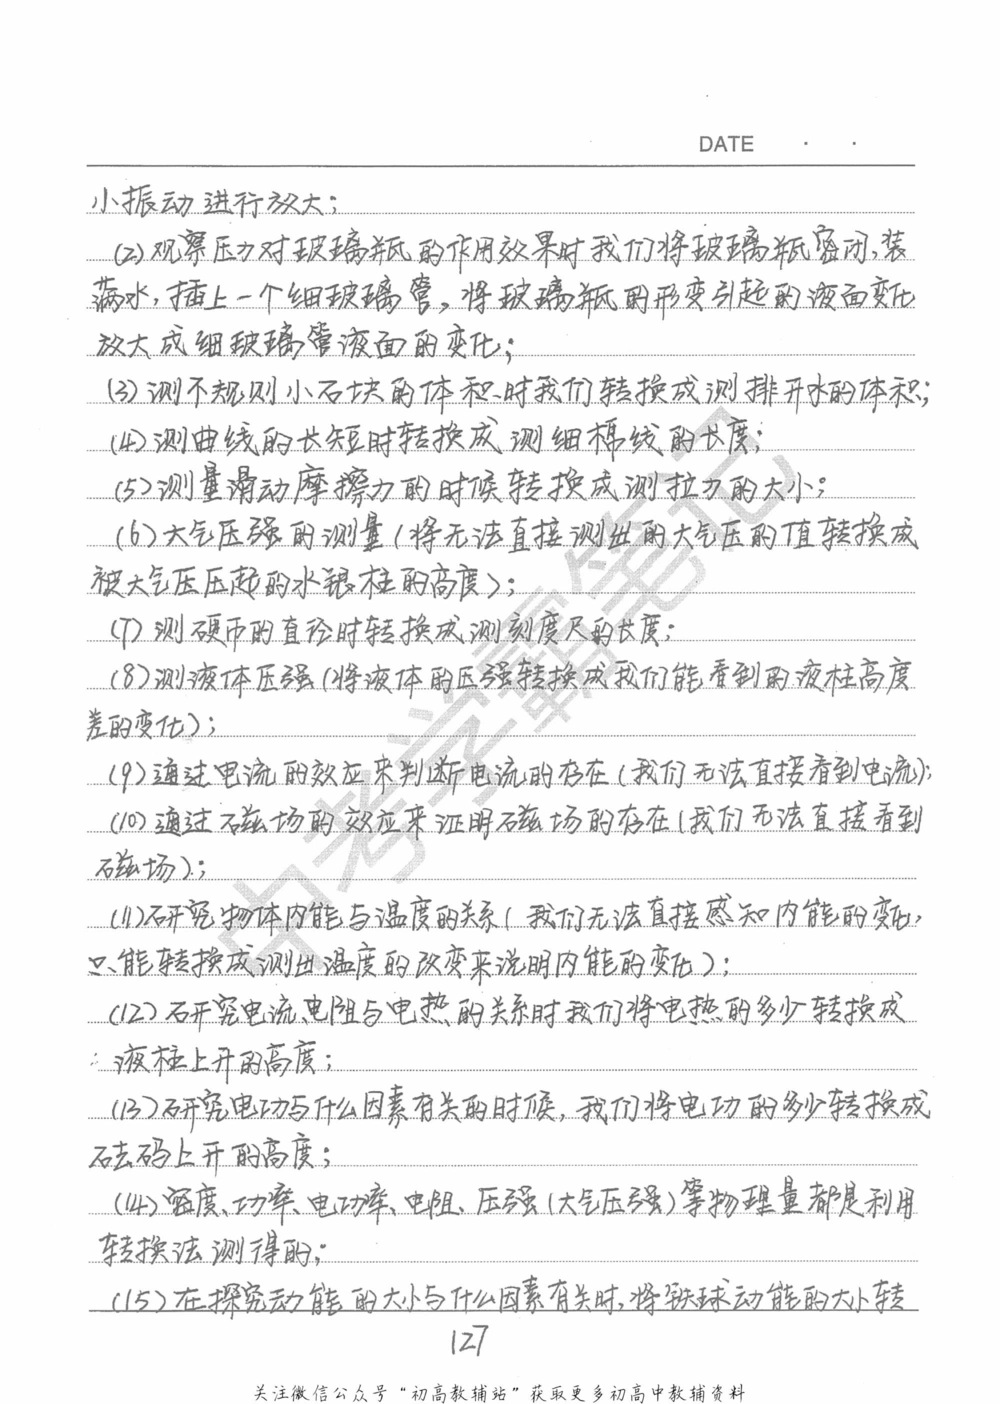 DATE · ·
小振动进行放大；
(2)观察压力对玻璃瓶的作用效果时我们将玻璃瓶密闭，装
满水，插上一个细玻璃管。将玻璃瓶的形变引起的液面变化
放大成细玻璃管液面的变化；
(3)测不规则小石块的体积时我们转换成测排开水的体积；
(4)测曲线的长短时转换成测细棉线的长度；
(5)测量滑动摩擦力的时候转换成测拉力的大小；
(6)大气压强的测量(将无法直接测出的大气压的值转换成
被大气压压起的水银柱的高度)；
(7)测硬币的直径时转换成测刻度尺的长度；
(8)测液体压强(将液体的压强转换成我们能看到的液柱高度
差的变化)；
(9)通过电流的效应来判断电流的存在(我们无法直接看到电流)；
(10)通过磁场的效应来证明磁场的存在(我们无法直接看到
磁场)；
(11)研究物体内能与温度的关系(我们无法直接感知内能的变化，
只能转换成测出温度的改变来说明内能的变化)；
(12)研究电流、电阻与电热的关系时我们将电热的多少转换成
液柱上升的高度；
(13)研究电功与什么因素有关的时候，我们将电功的多少转换成
砝码上升的高度；
(14)密度、功率、电功率、电阻、压强(大气压强)等物理量都是利用
转换法测得的；
(15)在探究动能的大小与什么因素有关时，将铁球动能的大小转
127
关注微信公众号“初高教辅站”获取更多初高中教辅资料
中考学霸笔记